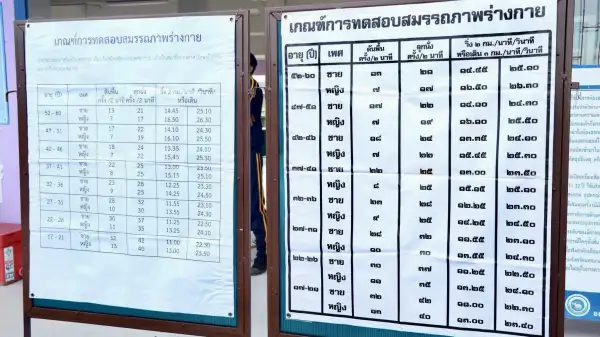 เกณฑ์การทดสอบสมรรถภาพร่างกาย
อายุ (ปี) เพศ ดันพื้น ครั้ง/2 นาที ลุกนั่ง ครั้ง/2 นาที วิ่ง 2 กม./นาที/วินาที หรือเดิน
52 - 60 ชาย 13 21 14.45 25.10
หญิง 7 17 16.50 26.30
47 - 51 ชาย 17 22 14.10 24.30
หญิง 7 19 16.10 25.50
42 - 46 ชาย 18 24 13.35 24.10
หญิง 22 15.45 25.30
37 - 41 ชาย 22 25 13.00 23.50
หญิง 8 25 15.15 25.10
32 - 36 ชาย 23 28 12.25 23.30
หญิง 9 25 14.25 24.50
27 - 31 ชาย 32 11.55 23.10
หญิง 10 30 13.55 24.30
22 - 26 ชาย 30 37 11.25 22.50
หญิง 11 35 13.25 24.10
17 - 21 ชาย 32 42 11.00 22.30
หญิง 13 40 13.00 23.50
เกณฑ์การทดสอบสมรรถภาพร่างกาย
อายุ (ปี) เพศ ดันพื้น ครั้ง/๒ นาที ลุกนั่ง ครั้ง/๒ นาที วิ่ง ๒ กม./นาที/วินาที หรือเดิน ๓ กม./นาที/วินาที
๕๒-๖๐ ชาย ๑๓ ๒๑ ๑๔.๔๕ ๒๕.๑๐
หญิง ๗ ๑๗ ๑๖.๕๐ ๒๖.๓๐
๔๗-๕๑ ชาย ๑๗ ๒๒ ๑๔.๑๐ ๒๔.๓๐
หญิง ๗ ๑๙ ๑๖.๑๐ ๒๕.๕๐
๔๒-๔๖ ชาย ๑๘ ๒๔ ๑๓.๓๕ ๒๔.๑๐
หญิง ๗ ๒๒ ๑๕.๔๕ ๒๕.๓๐
๓๗-๔๑ ชาย ๒๒ ๒๕ ๑๓.๐๐ ๒๓.๕๐
หญิง ๘ ๒๕ ๑๕.๑๕ ๒๕.๑๐
๓๒-๓๖ ชาย ๒๓ ๒๘ ๑๒.๒๕ ๒๓.๓๐
หญิง ๙ ๒๕ ๑๔.๒๕ ๒๔.๕๐
๒๗-๓๑ ชาย ๒๘ ๓๒ ๑๑.๕๕ ๒๓.๑๐
หญิง ๑๐ ๓๐ ๑๓.๕๕ ๒๔.๓๐
๒๒-๒๖ ชาย ๓๐ ๓๗ ๑๑.๒๕ ๒๒.๕๐
หญิง ๑๑ ๓๕ ๑๓.๒๕ ๒๔.๑๐
๑๗-๒๑ ชาย ๓๒ ๔๒ ๑๑.๐๐ ๒๒.๓๐
หญิง ๑๓ ๔๐ ๑๓.๐๐ ๒๓.๕๐